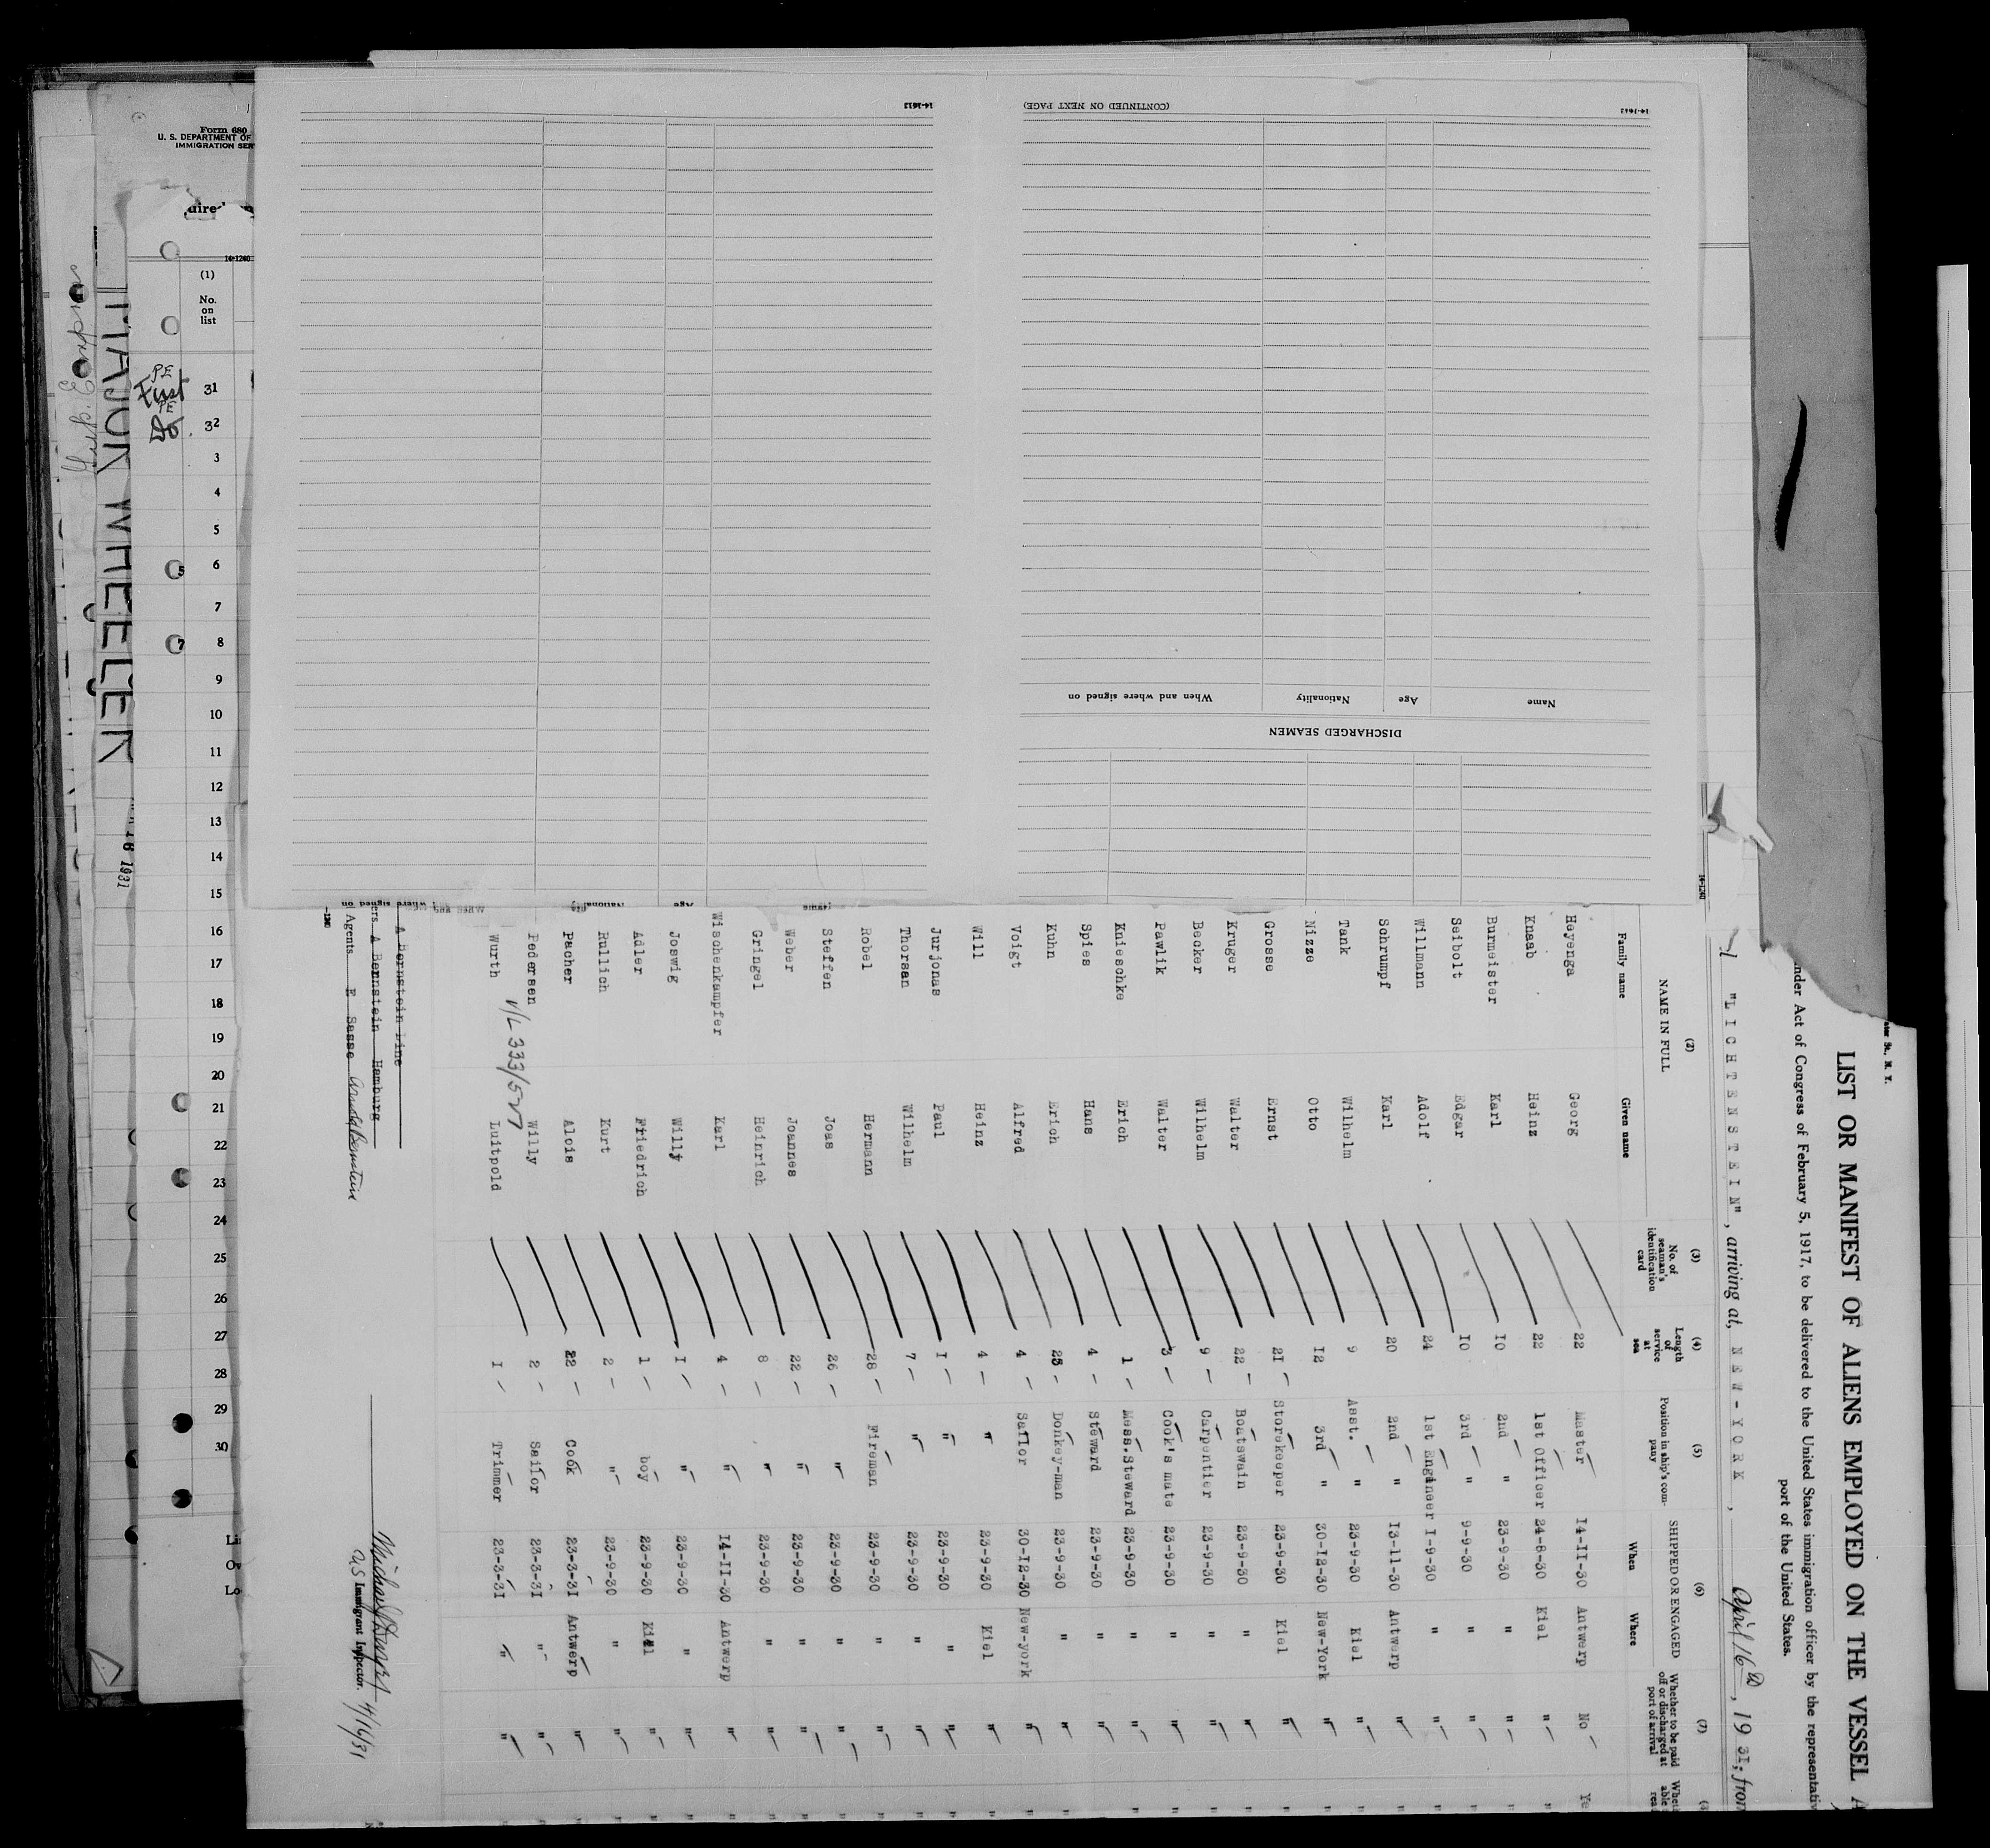 LIST OR MANIFEST OF ALIENS EMPLOYED ON THE VESSEL A
under Act of Congress of February 5, 1917, to be delivered to the United States immigration officer by the representativ
port of the United States.
"LICHTENSTEIN", arriving at, NEW-YORK, April 16th, 1931; from
(2) (3) (4) (5) (6) (7)
NAME IN FULL No. of seaman's identification card Length of service at sea Position in ship's company SHIPPED OR ENGAGED Whether to be paid off or discharged at port of arrival
Family name Given name When Where
Heyenga Georg 22 Master 14-11-30 Antwerp No Ye
Knaab Heinz 22 1st Officer 24-8-30 Kiel "
Burmeister Karl 10 2nd " 23-9-30 " "
Seibolt Edgar 10 3rd " 9-9-30 " "
Willmann Adolf 24 1st Engineer 1-9-30 " "
Schrumpf Karl 20 2nd " 13-11-30 Antwerp "
Tank Wilhelm 9 Asst. " 23-9-30 Kiel "
Nizze Otto 12 3rd " 30-12-30 New-York "
Grosse Ernst 21 Storekeeper 23-9-30 Kiel "
Kruger Walter 22 Boatswain 23-9-30 " "
Becker Wilhelm 9 Carpentier 23-9-30 " "
Pawlik Walter 3 Cook's mate 23-9-30 " "
Knieschke Erich 1 Mess.Steward 23-9-30 " "
Spies Hans 4 Steward 23-9-30 " "
Kuhn Erich 25 Donkey-man 23-9-30 " "
Voigt Alfred 4 Sailor 30-12-30 New-york "
Will Heinz 4 " 23-9-30 Kiel "
Jurjonas Paul 1 " 23-9-30 " "
Thorsan Wilhelm 7 " 23-9-30 " "
Robel Hermann 28 Fireman 23-9-30 " "
Steffen Joas 26 " 23-9-30 " "
Weber Joannes 22 " 23-9-30 " "
Gringel Heinrich 8 " 23-9-30 " "
Wischenkampfer Karl 4 " 14-11-30 Antwerp "
Joswig Willy 1 " 23-9-30 " "
Adler Friedrich 1 boy 23-9-30 Kiel "
Rullich Kurt 2 " 23-9-30 " "
Pacher Alois 22 Cook 23-3-31 Antwerp "
Pedersen Willy 2 Sailor 23-3-31 " "
Wurth Luitpold 1 Trimmer 23-3-31 " "
V/L 333/525
A Bernstein Line
ers. A Bernstein Hamburg
Agents. E Sasse Arnold Bernstein
U S Immigrant Inspector. 4/16/31
14-1240
14-1613
(CONTINUED ON NEXT PAGE)
14-1613
DISCHARGED SEAMEN
Name Age Nationality When and where signed on
Form 680
U. S. DEPARTMENT OF
IMMIGRATION SER
14-1240
(1)
No.
on
list
PE
First 31
PE
Do 32
3
4
5
6
7
8
9
10
11
12
13
14
15
16
17
18
19
20
21
22
23
24
25
26
27
28
29
30
Li
Ow
Lo
MAJOR WHEELER
16 1931